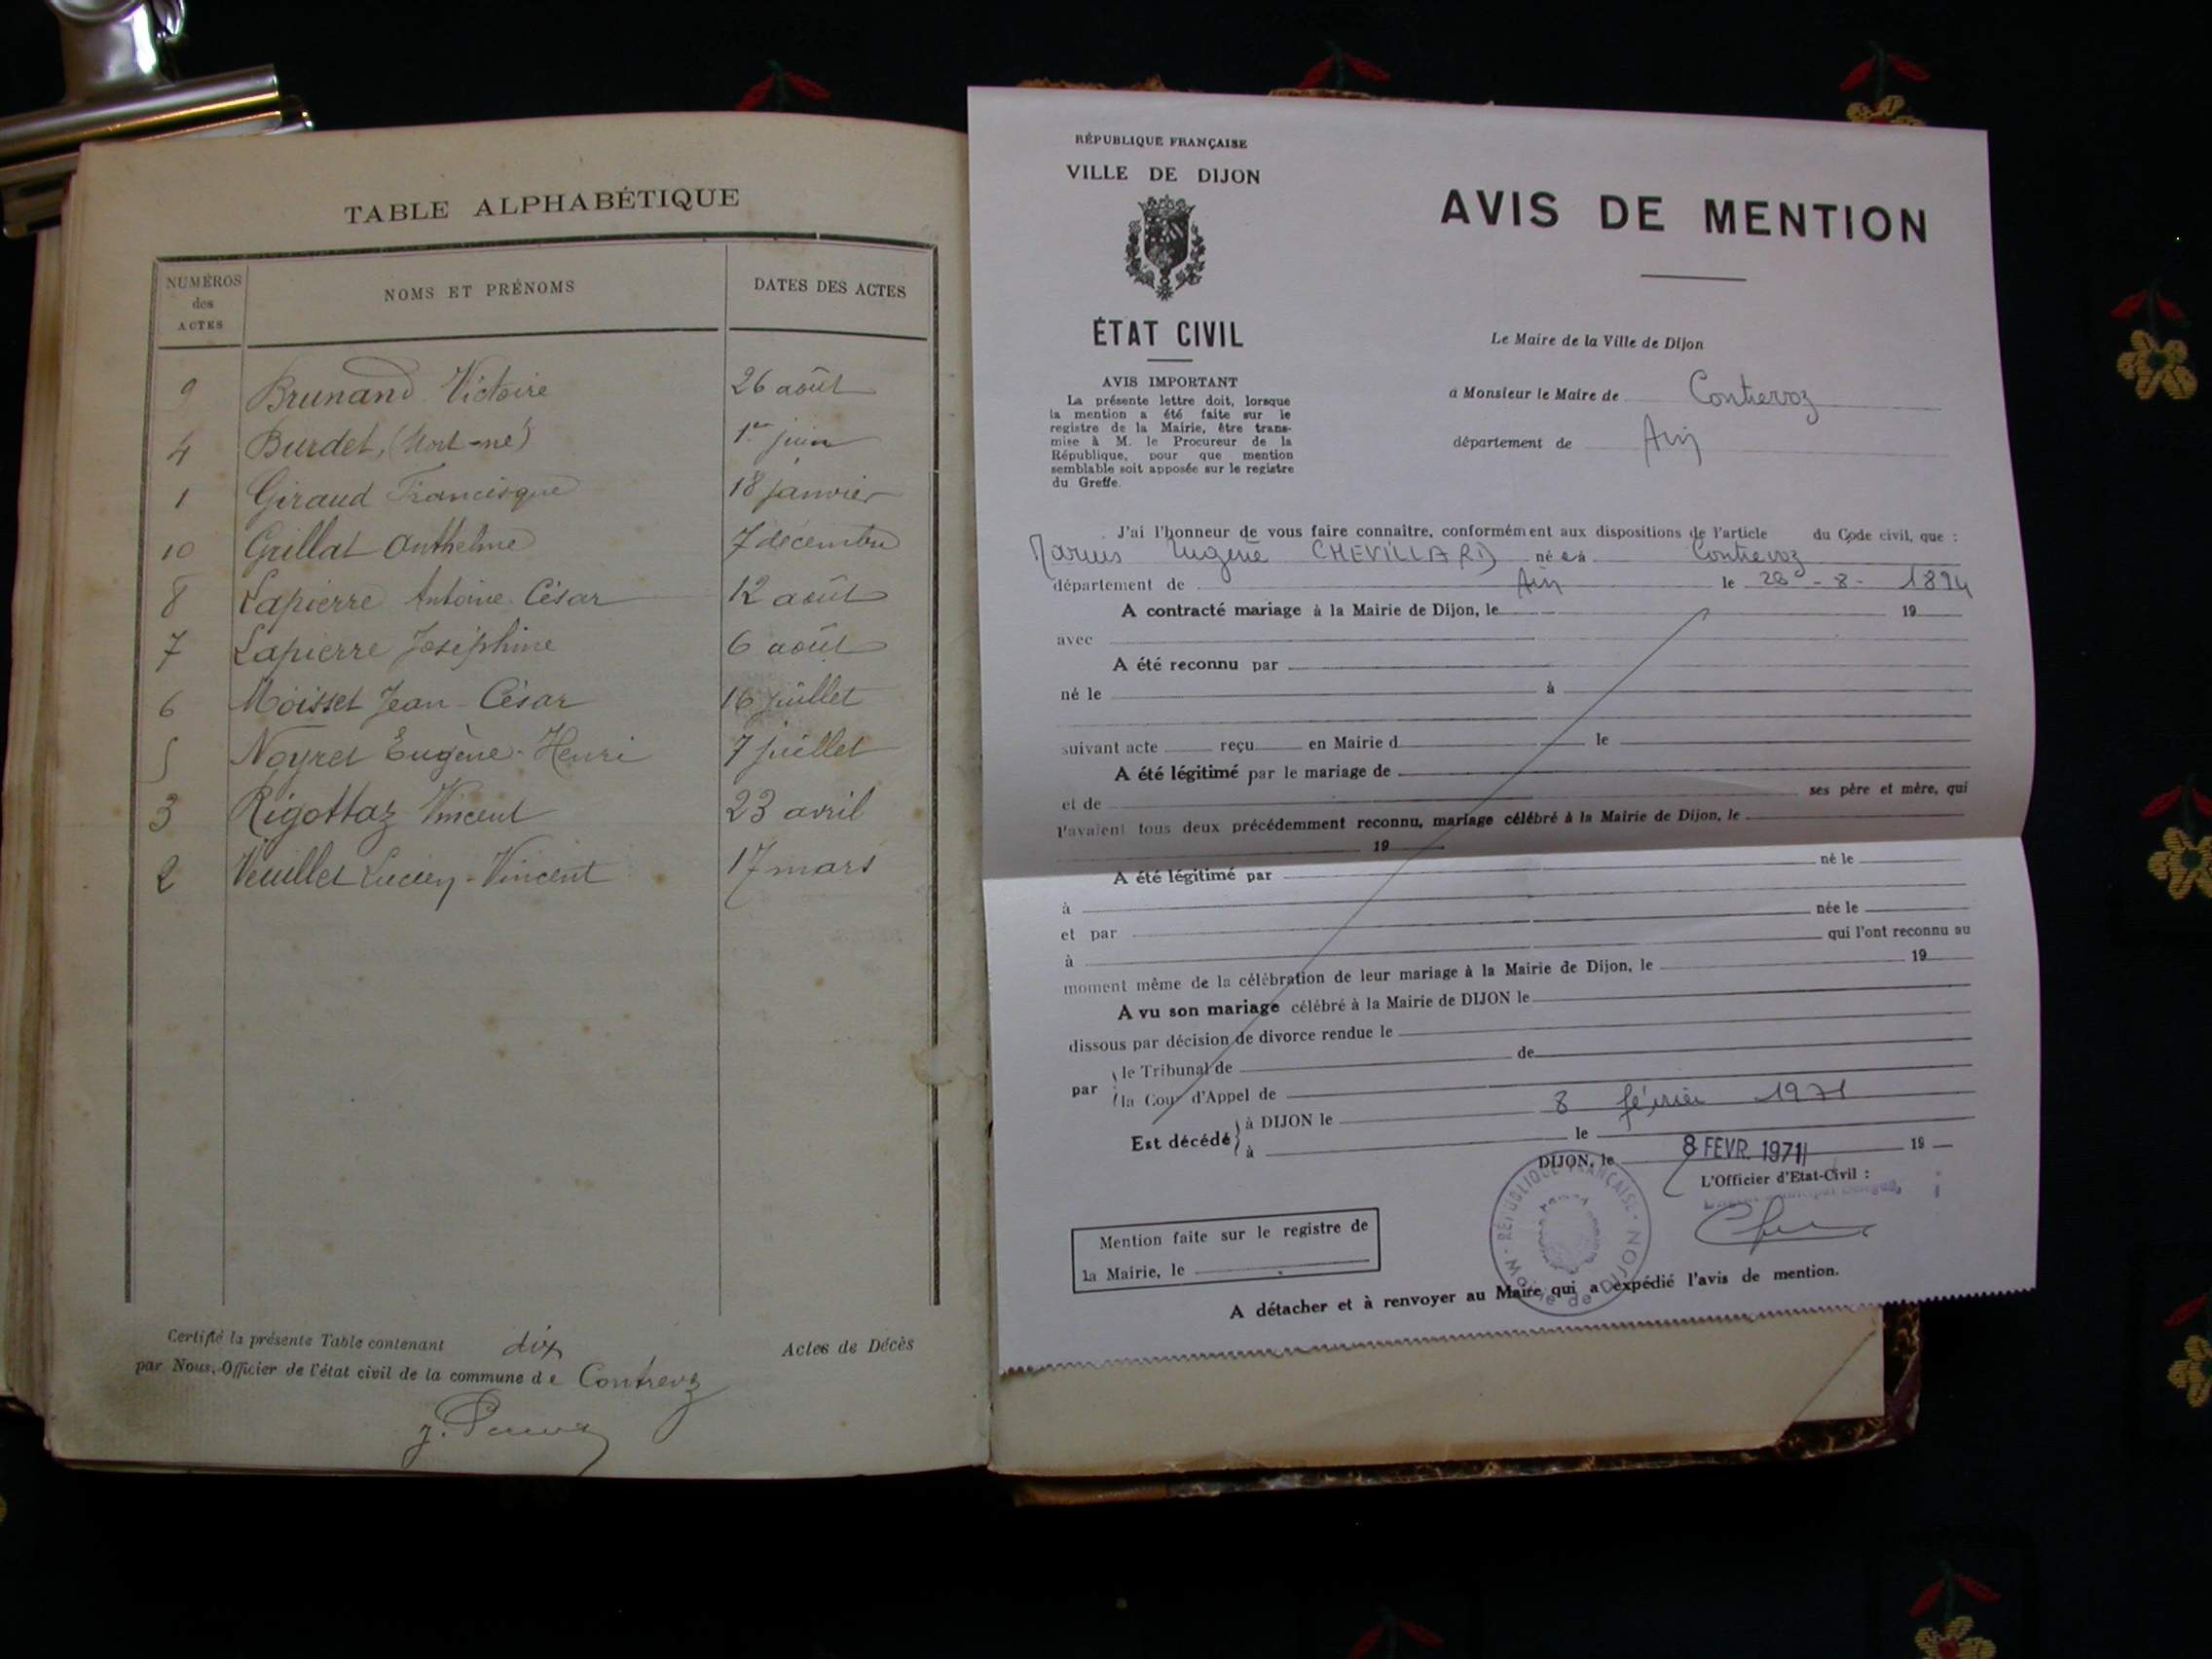 TABLE ALPHABÉTIQUE
NUMÉROS des ACTES NOMS ET PRÉNOMS DATES DES ACTES
9 Brunand Victoire 26 août
4 Burdet, (Mort-né) 1er juin
1 Giraud Francisque 18 janvier
10 Grillat Anthelme 7 décembre
8 Lapierre Antoine César 12 août
7 Lapierre Joséphine 6 août
6 Moisset Jean-César 16 juillet
5 Noyret Eugène-Henri 7 juillet
3 Rigottaz Vincent 23 avril
2 Veuillet Lucien-Vincent 17 mars
Certifié la présente Table contenant dix Actes de Décès
par Nous, Officier de l'état civil de la commune de Contrevoz
RÉPUBLIQUE FRANÇAISE
VILLE DE DIJON
ÉTAT CIVIL
AVIS IMPORTANT
La présente lettre doit, lorsque
la mention a été faite sur le
registre de la Mairie, être trans-
mise à M. le Procureur de la
République, pour que mention
semblable soit apposée sur le registre
du Greffe.
AVIS DE MENTION
Le Maire de la Ville de Dijon
à Monsieur le Maire de Contrevoz
département de Ain
J'ai l'honneur de vous faire connaître, conformément aux dispositions de l'article du Code civil, que :
Marius Eugène CHEVILLARD né à Contrevoz
département de Ain le 28-8-1894
A contracté mariage à la Mairie de Dijon, le 19
avec
A été reconnu par
né le à
suivant acte reçu en Mairie d le
A été légitimé par le mariage de
et de ses père et mère, qui
l'avaient tous deux précédemment reconnu, mariage célébré à la Mairie de Dijon, le
19
A été légitimé par né le
à
et par née le
à qui l'ont reconnu au
moment même de la célébration de leur mariage à la Mairie de Dijon, le 19
A vu son mariage célébré à la Mairie de DIJON le
dissous par décision de divorce rendue le
par le Tribunal de de
la Cour d'Appel de
Est décédé à DIJON le 8 février 1971
à le
DIJON, le 8 FEVR. 1971 19
L'Officier d'Etat-Civil :
RÉPUBLIQUE FRANÇAISE
Mairie de DIJON
Mention faite sur le registre de
la Mairie, le
A détacher et à renvoyer au Maire qui a expédié l'avis de mention.